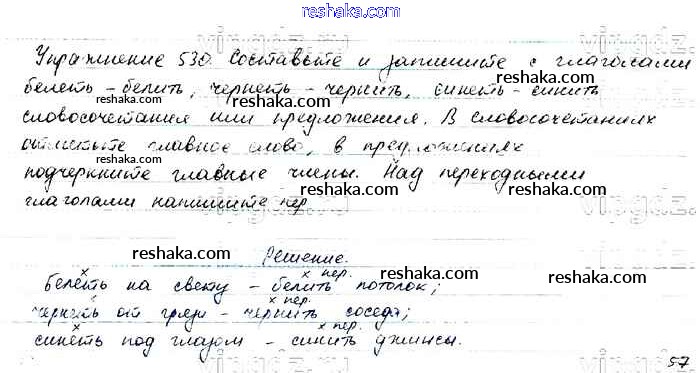 reshaka.com
Упражнение 530. Составьте и запишите с глаголами
белеть - белить, чернеть - чернить, синеть - синить
словосочетания или предложения. В словосочетаниях
отметьте главное слово, в предложениях
подчеркните главные члены. Над переходными
глаголами напишите пер
Решение.
х х пер.
белеть на свету - белить потолок;
х х пер.
чернеть от грязи - чернить соседа;
х х пер.
синеть под глазом - синить джинсы.
57
reshaka.com
reshaka.com
reshaka.com
reshaka.com
reshaka.com
reshaka.com
reshaka.com
reshaka.com
reshaka.com